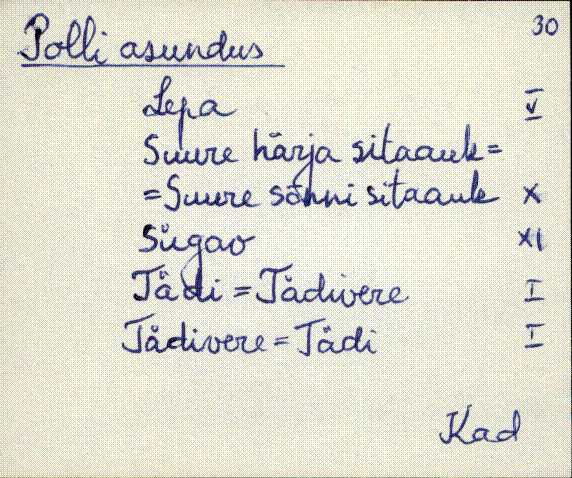 30
Polli asundus
Lepa V
Suure härja sitaauk=
=Suure sõnni sitaauk X
Sügao XI
Tädi = Tädivere I
Tädivere = Tädi I
Kad